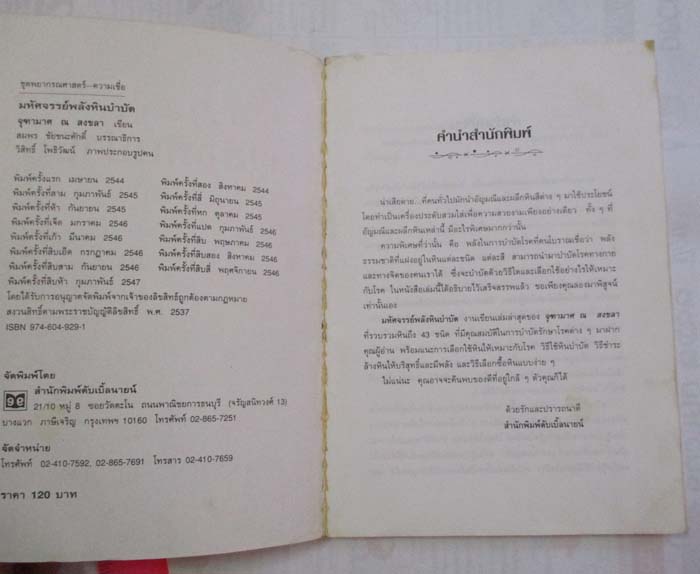 ชุดพยากรณศาสตร์-ความเชื่อ
มหัศจรรย์พลังหินบำบัด
จุฑามาศ ณ สงขลา เขียน
สมพร ชัยชนะศักดิ์ บรรณาธิการ
วิสิทธิ์ โพธิวัฒน์ ภาพประกอบรูปคน
พิมพ์ครั้งแรก เมษายน 2544
พิมพ์ครั้งที่สอง สิงหาคม 2544
พิมพ์ครั้งที่สาม กุมภาพันธ์ 2545
พิมพ์ครั้งที่สี่ มิถุนายน 2545
พิมพ์ครั้งที่ห้า กันยายน 2545
พิมพ์ครั้งที่หก ตุลาคม 2545
พิมพ์ครั้งที่เจ็ด มกราคม 2546
พิมพ์ครั้งที่แปด กุมภาพันธ์ 2546
พิมพ์ครั้งที่เก้า มีนาคม 2546
พิมพ์ครั้งที่สิบ พฤษภาคม 2546
พิมพ์ครั้งที่สิบเอ็ด กรกฎาคม 2546
พิมพ์ครั้งที่สิบสอง สิงหาคม 2546
พิมพ์ครั้งที่สิบสาม กันยายน 2546
พิมพ์ครั้งที่สิบสี่ พฤศจิกายน 2546
พิมพ์ครั้งที่สิบห้า กุมภาพันธ์ 2547
โดยได้รับการอนุญาตจัดพิมพ์จากเจ้าของลิขสิทธิ์ถูกต้องตามกฎหมาย
สงวนสิทธิ์ตามพระราชบัญญัติลิขสิทธิ์ พ.ศ. 2537
ISBN 974-604-929-1
จัดพิมพ์โดย
สำนักพิมพ์ดับเบิ้ลนายน์
21/10 หมู่ 8 ซอยวัดตะโน ถนนพาณิชยการธนบุรี (จรัญสนิทวงศ์ 13)
บางแวก ภาษีเจริญ กรุงเทพฯ 10160 โทรศัพท์ 02-865-7251
จัดจำหน่าย
โทรศัพท์ 02-410-7592, 02-865-7691 โทรสาร 02-410-7659
ราคา 120 บาท
คำนำสำนักพิมพ์
น่าเสียดาย...ที่คนทั่วไปมักนำอัญมณีและผลึกหินสีต่าง ๆ มาใช้ประโยชน์
โดยทำเป็นเครื่องประดับสวมใส่เพื่อความสวยงามเพียงอย่างเดียว ทั้ง ๆ ที่
อัญมณีและผลึกหินเหล่านี้ มีอะไรพิเศษมากกว่านั้น
ความพิเศษที่ว่านั้น คือ พลังในการบำบัดโรคที่คนโบราณเชื่อว่า พลัง
ธรรมชาติที่แฝงอยู่ในหินแต่ละชนิด แต่ละสี สามารถนำมาบำบัดโรคทางกาย
และทางจิตของคนเราได้ ซึ่งจะบำบัดด้วยวิธีใดและเลือกใช้อย่างไรให้เหมาะ
กับโรค ในหนังสือเล่มนี้ได้อธิบายไว้เสร็จสรรพแล้ว ขอเพียงคุณลองมาพิสูจน์
เท่านั้นเอง
มหัศจรรย์พลังหินบำบัด งานเขียนเล่มล่าสุดของ จุฑามาศ ณ สงขลา
ที่รวบรวมหินถึง 43 ชนิด ที่มีคุณสมบัติในการบำบัดรักษาโรคต่าง ๆ มาฝาก
คุณผู้อ่าน พร้อมแนะการเลือกใช้หินให้เหมาะกับโรค วิธีใช้หินบำบัด วิธีชำระ
ล้างหินให้บริสุทธิ์และมีพลัง และวิธีเลือกซื้อหินแบบง่าย ๆ
ไม่แน่นะ คุณอาจจะค้นพบของดีที่อยู่ใกล้ ๆ ตัวคุณก็ได้
ด้วยรักและปรารถนาดี
สำนักพิมพ์ดับเบิ้ลนายน์